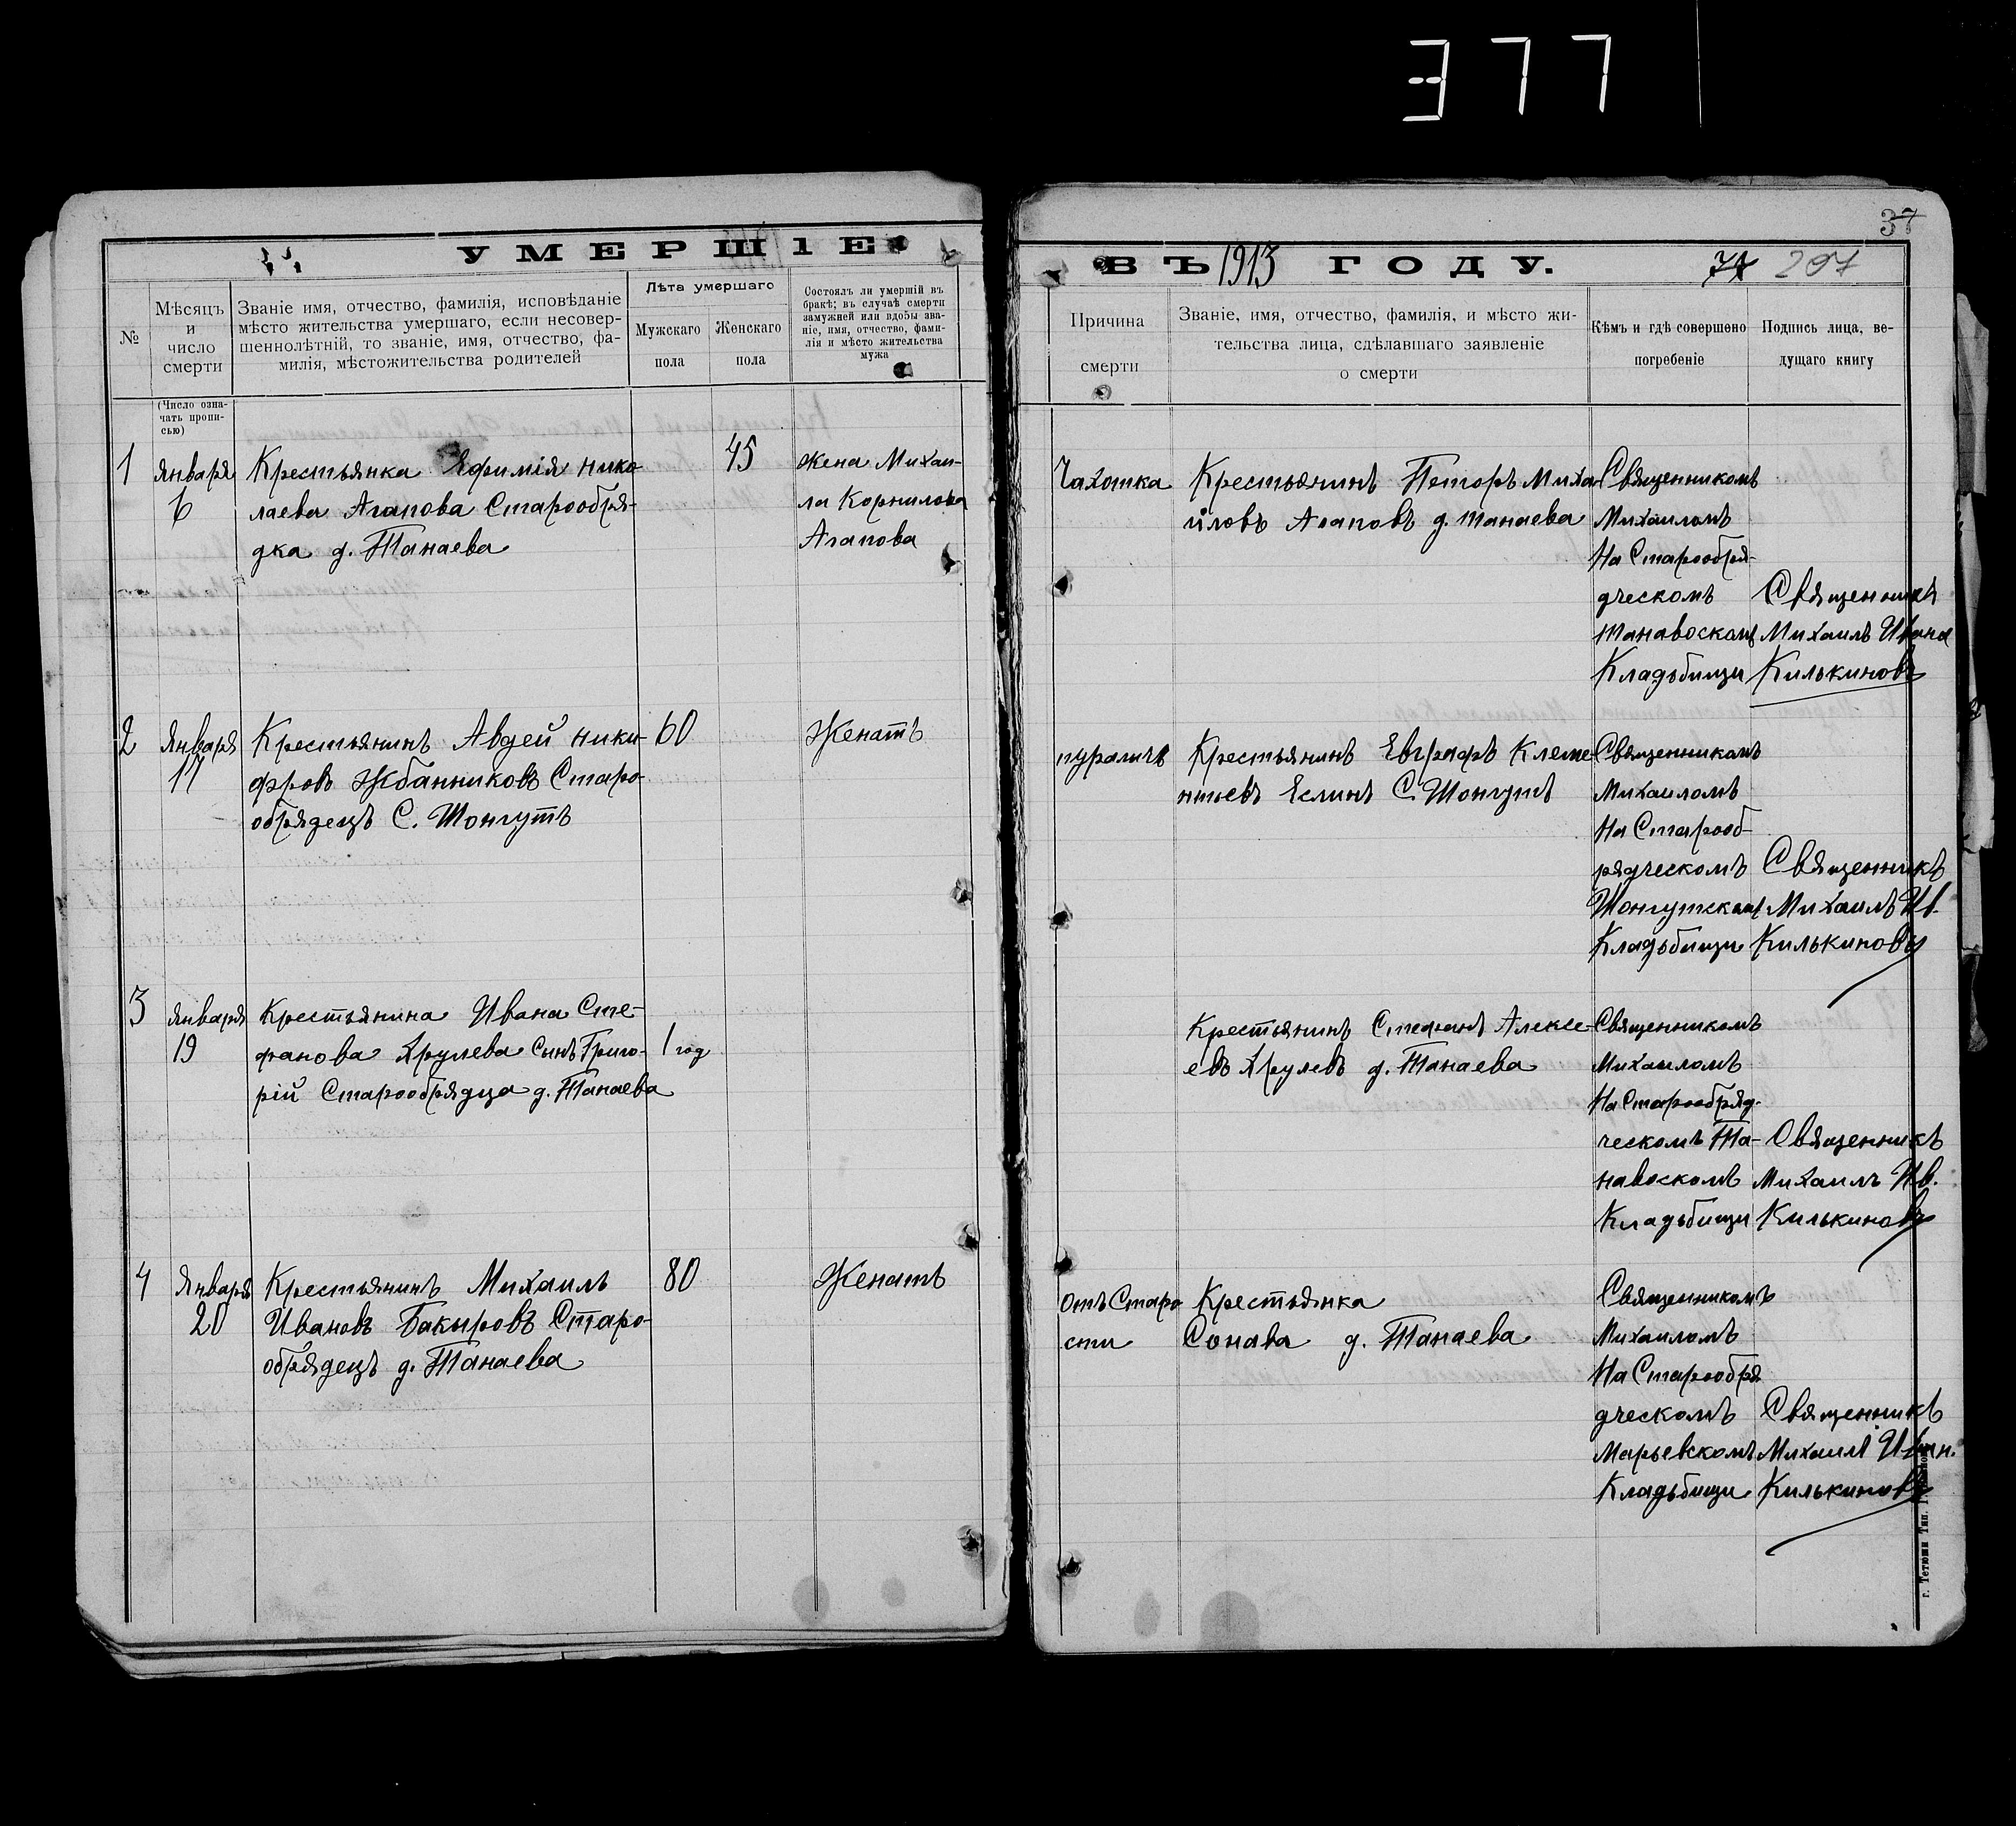 377
37
УМЕРШІЕ
ВЪ 1913 ГОДУ.
77 207
№
Мѣсяцъ
и
число
смерти
Званіе имя, отчество, фамилія, исповѣданіе
мѣсто жительства умершаго, если несовер-
шеннолѣтній, то званіе, имя, отчество, фа-
милія, мѣстожительства родителей
Лѣта умершаго
Мужскаго
пола
Женскаго
пола
Состоялъ ли умершій въ
бракѣ; въ случаѣ смерти
замужней или вдовы зва-
ніе, имя, отчество, фами-
лія и мѣсто жительства
мужа
Причина
смерти
Званіе, имя, отчество, фамилія, и мѣсто жи-
тельства лица, сдѣлавшаго заявленіе
о смерти
Кѣмъ и гдѣ совершено
погребеніе
Подпись лица, ве-
дущаго книгу
(Число озна-
чать пропи-
сью)
1
января
6
Крестьянка Ефимія Нико
лаева Агапова Старообря-
дка д. Танаева
45
жена Михаи-
ла Корнилова
Агапова
Чахотка
Крестьянинъ Петоръ Миха
йловъ Агаповъ д. Танаева
Священникомъ
Михаиломъ
На Старообря-
дческомъ
Танавоскомъ
Кладьбищи
Священникъ
Михаилъ Ивана
Килькиновъ
2
января
17
Крестьянинъ Авдей Ники-
форовъ Жбанниковъ Старо-
обрядецъ С. Шонгутъ
60
Женатъ
Крестьянинъ Евграфъ Клеме
нтьевъ Еслинъ С. Шонгутъ
Священникомъ
Михаиломъ
На Старооб-
рядческомъ
Шонгутскомъ
Кладьбищи
Священникъ
Михаилъ Ив.
Килькиновъ
3
января
19
Крестьянина Ивана Сте-
фанова Хрулева Сынъ Григо-
рій Старообрядца д. Танаева
1 год
Крестьянинъ Стефанъ Алексе-
евъ Хрулевъ д. Танаева
Священникомъ
Михаиломъ
На Старообряд-
ческомъ Та-
навоскомъ
Кладьбищи
Священникъ
Михаилъ Ив.
Килькиновъ
4
Января
20
Крестьянинъ Михаилъ
Ивановъ Бакыровъ Старо-
обрядецъ д. Танаева
80
Женатъ
Отъ Старо
сти
Крестьянка
д. Танаева
Священникомъ
Михаиломъ
На Старообря
дческомъ
Марьевскомъ
Кладьбищи
Священникъ
Михаилъ Иван.
Килькиновъ
г. Тетюши Тип.